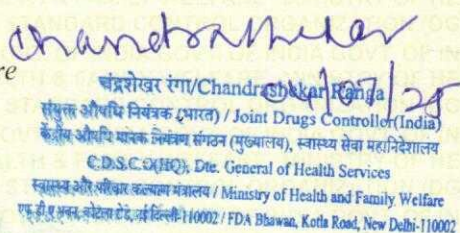 Chandrashekar
re
04/07/25
चंद्रशेखर रंगा/Chandrashekar Ranga
संयुक्त औषधि नियंत्रक (भारत) / Joint Drugs Controller (India)
केंद्रीय औषधि मानक नियंत्रण संगठन (मुख्यालय), स्वास्थ्य सेवा महानिदेशालय
C.D.S.C.O(HQ), Dte. General of Health Services
स्वास्थ्य और परिवार कल्याण मंत्रालय / Ministry of Health and Family Welfare
एफ.डी.ए भवन, कोटला रोड, नई दिल्ली-110002 / FDA Bhawan, Kotla Road, New Delhi-110002